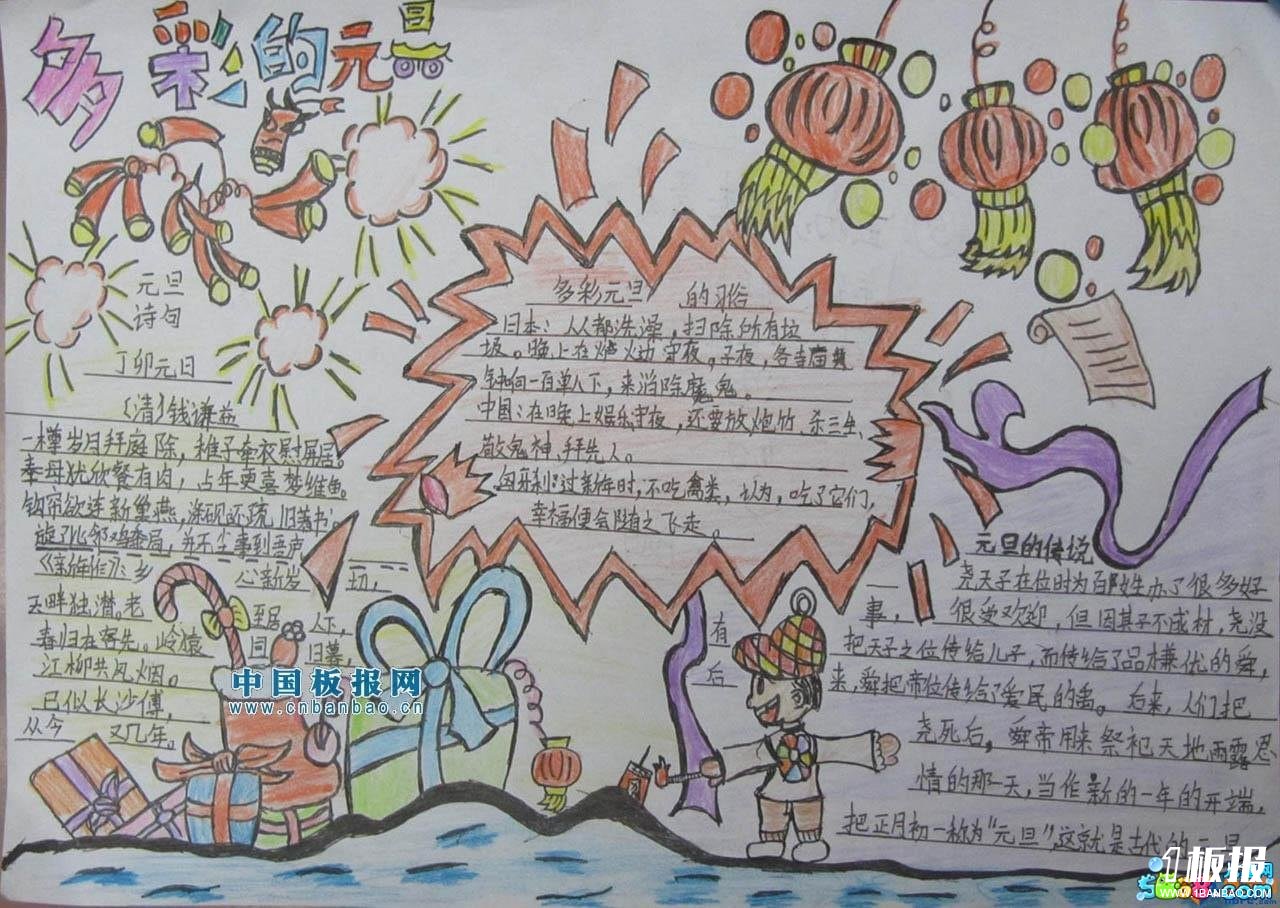 多彩的元旦
元旦
诗句
丁卯元日
(清)钱谦益
一樽岁月拜庭除，稚子牵衣慰屏居。
奉母犹欣餐有肉，占年更喜梦维鱼。
钩帘欲连新巢燕，涤砚还疏旧著书。
旋了比邻鸡黍局，并不尘事到吾庐
《新年作》乡心新岁切，
天畔独潸。老至居人下，
春归在客先。岭猿同旦暮，
江柳共风烟。
已似长沙傅，
从今又几年。
多彩元旦的习俗
日本：人人都洗澡，扫除所有垃
圾。晚上在炉火边守夜。子夜，各寺庙
钟响一百单八下，来消除魔鬼。
中国：在日晚上娱乐守夜，还要放炮竹、杀三牲、
敬鬼神，拜先人。
匈牙利：过新年时，不吃禽类，认为，吃了它们，
幸福便会随之飞走。
元旦的传说
尧天子在位时为百姓办了很多好
事，很受欢迎，但因其子不成材，尧没有
把天子之位传给儿子，而传给了品德兼优的舜，后
来，舜把帝位传给了爱民的禹。后来，人们把
尧死后，舜帝用来祭祀天地雨露恩
情的那一天，当作新的一年的开端，
把正月初一称为“元旦”，这就是古代的元旦
中国板报网
www.cnbanbao.cn
1板报
WWW.1BANBAO.COM